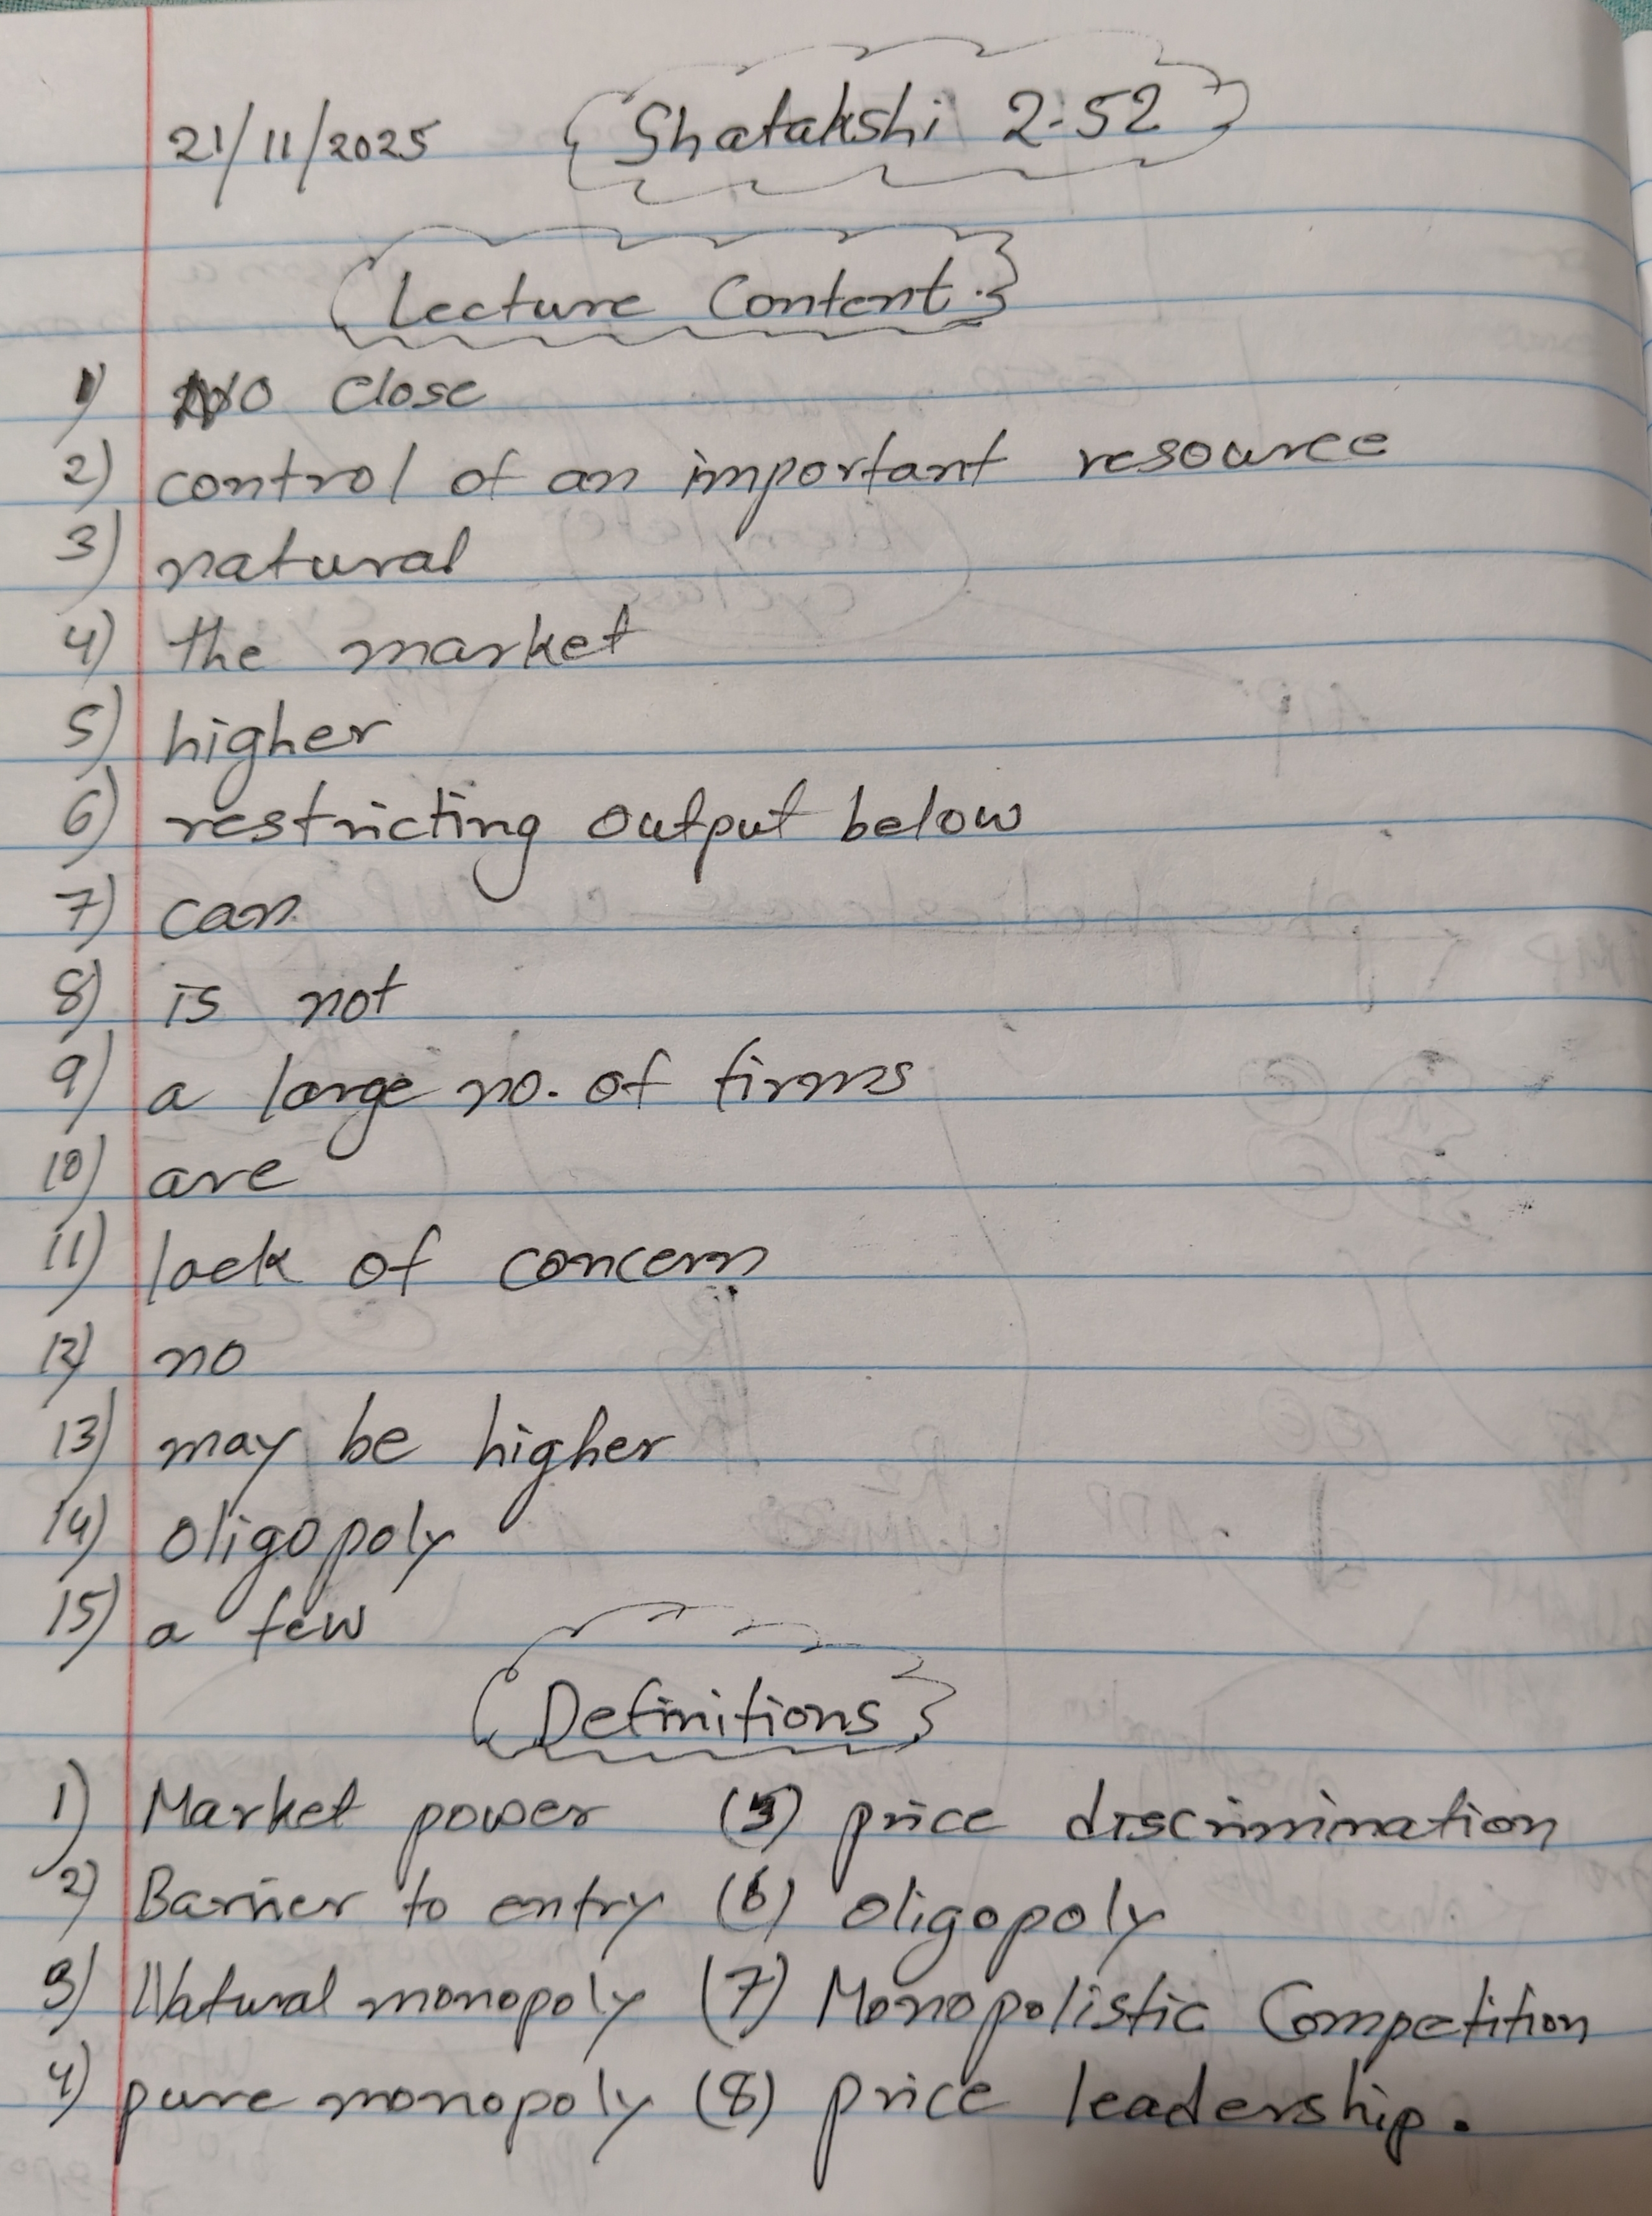 21/11/2025 Shatakshi 2:52
Lecture Content:
1) No close
2) control of an important resource
3) natural
4) the market
5) higher
6) restricting output below
7) can
8) is not
9) a large no. of firms
10) are
11) lack of concern
12) no
13) may be higher
14) oligopoly
15) a few
Definitions
1) Market power (5) price discrimination
2) Barrier to entry (6) oligopoly
3) Natural monopoly (7) Monopolistic Competition
4) pure monopoly (8) price leadership.